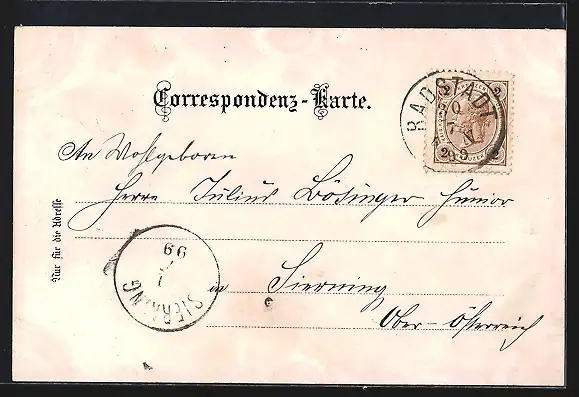 Correspondenz-Karte.
RADSTADT
An Wohlgeboren
Herrn Julius Bösinger Junior
in Sierning
Ober-Österreich
Nur für die Adresse
SIERNING
99